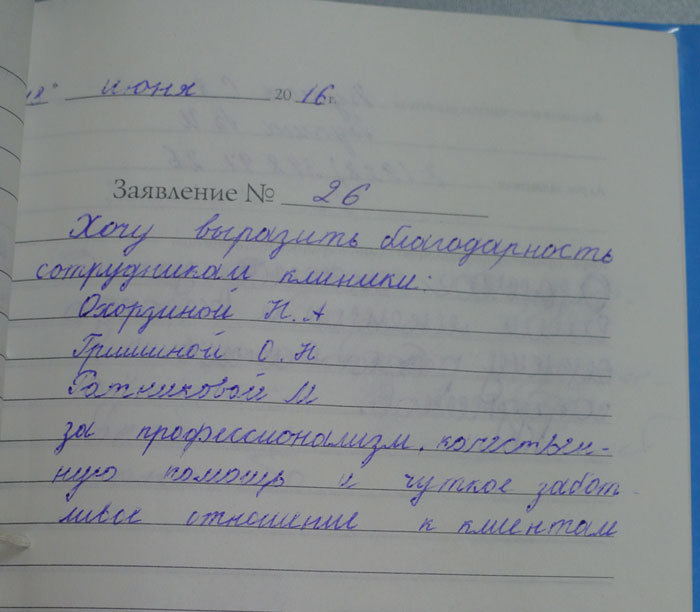 18" июня 2016 г.
Заявление № 26
Хочу выразить благодарность
сотрудникам клиники:
Охординой Н. А
Гришиной О. Н
Ражниковой М
за профессионализм, качествен-
ную помощь и чуткое забот-
ливое отношение к клиентам